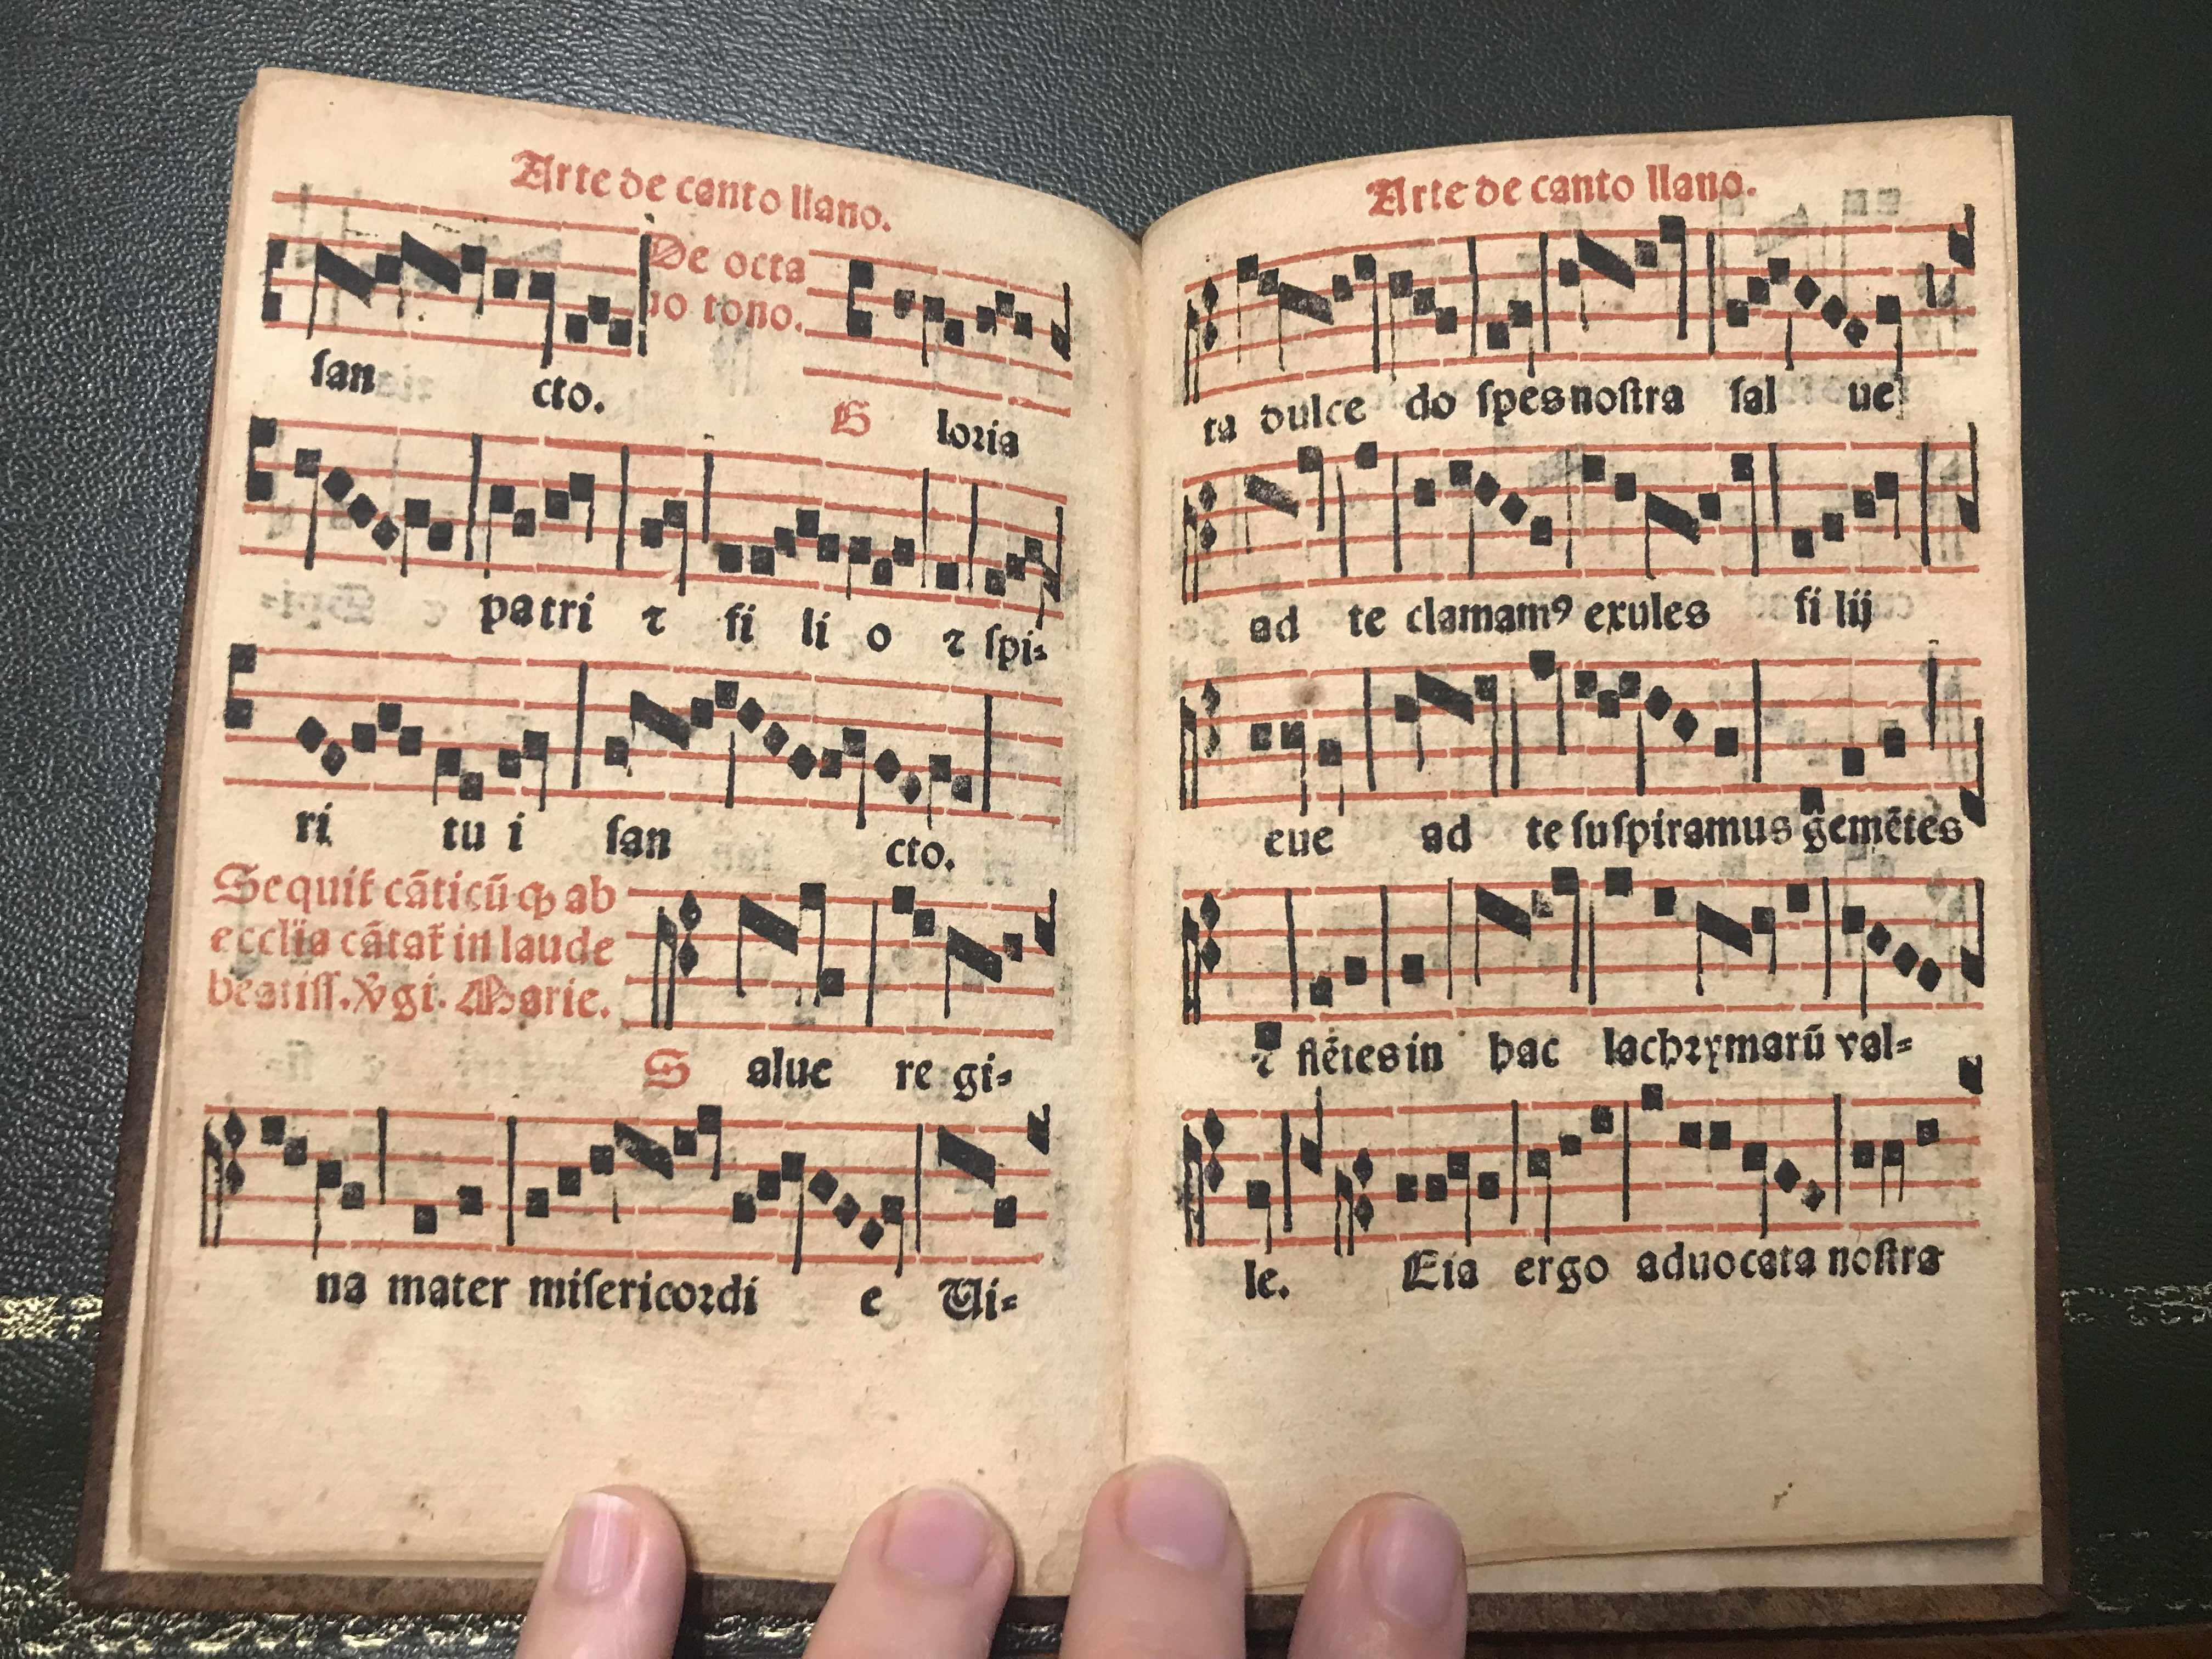 Arte de canto llano.
De octa
uo tono.
ſan cto.
G loꝛia
patri ⁊ fi li o ⁊ ſpi⸗
ri tu i ſan cto.
Sequit᷑ cãticũ ꝙ ab
eccl̃ia cãtat᷑ in laude
beatiſſ. v̾gi. Marie.
S alue re gi⸗
na mater miſericoꝛdi e Ui⸗
Arte de canto llano.
ta dulce do ſpes noſtra ſal ue
ad te clamamꝰ exules fi lij
eue ad te ſuſpiramus gemẽtes
⁊ flẽtes in hac lachꝛymarũ val⸗
le. Eia ergo aduocata noſtra